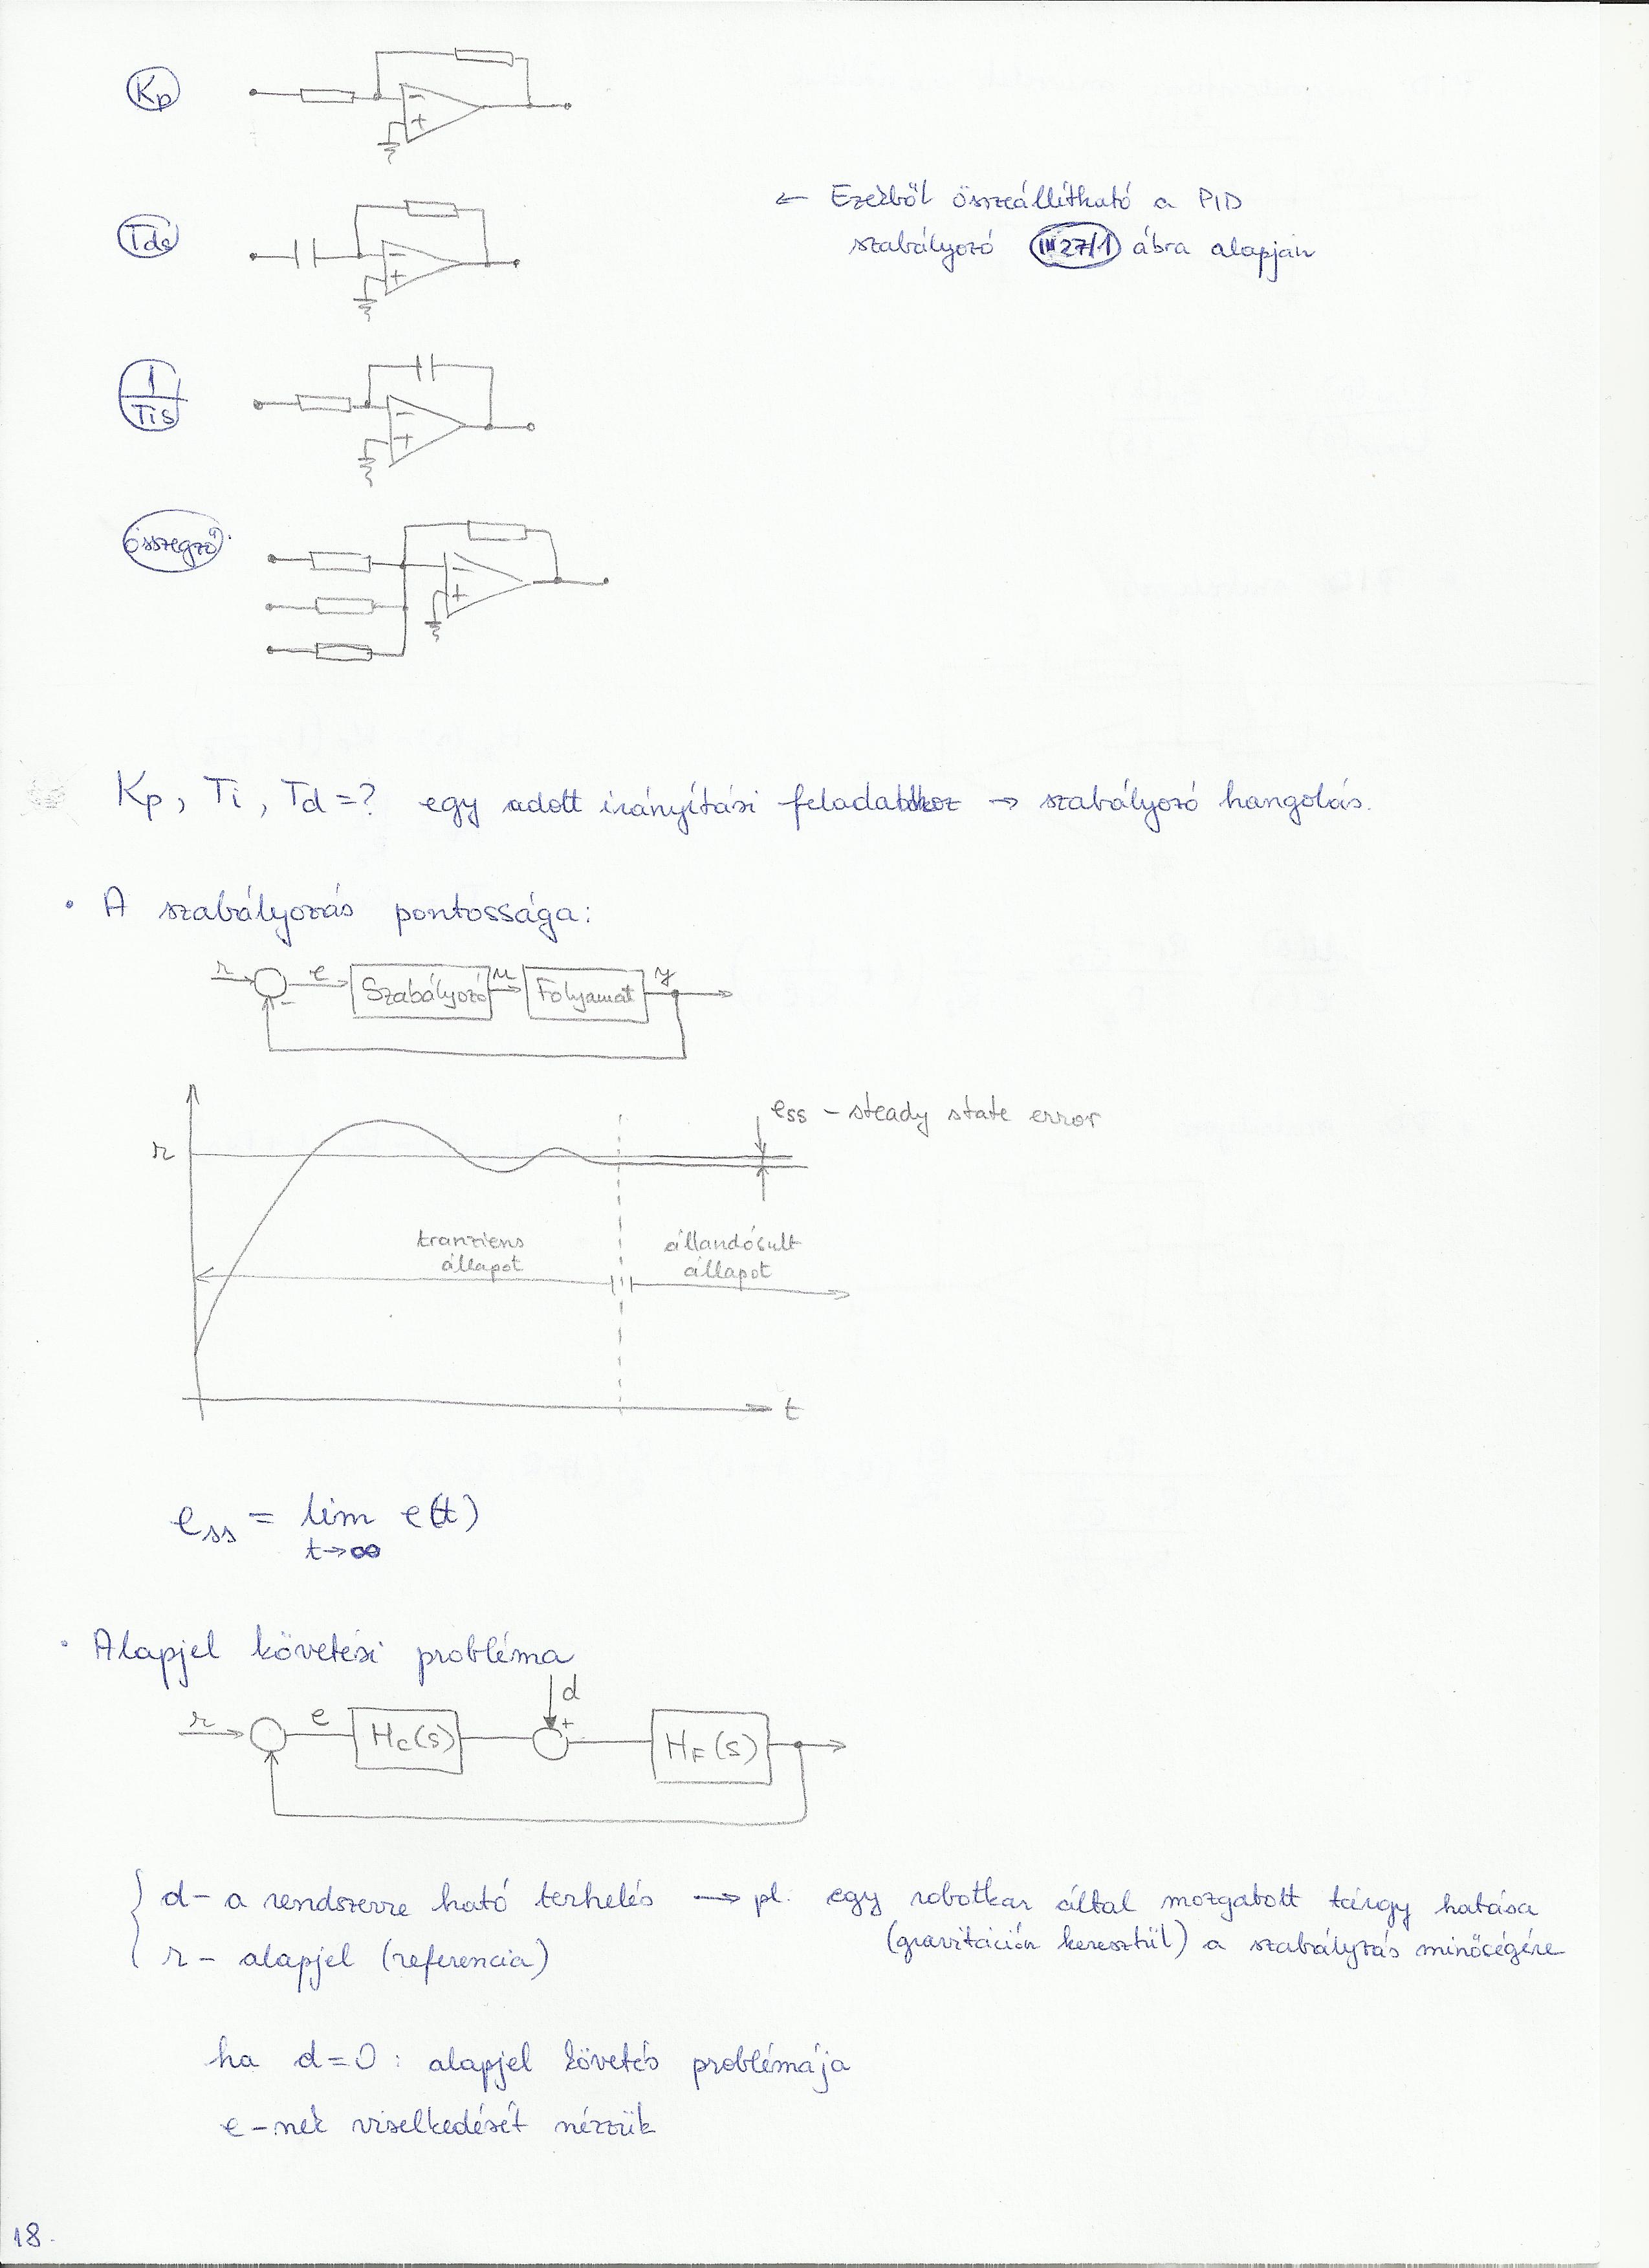 Kp
Tds
← Ezekből összeállítható a PID
szabályozó III 27/1 ábra alapján
1
Tis
összegző
Kp, Ti, Td=? egy adott irányítási feladathoz → szabályozó hangolás.
• A szabályozás pontossága:
r e Szabályozó u Folyamat y
-
ess - steady state error
r
tranziens
állapot
állandósult
állapot
t
ess = lim e(t)
t→∞
• Alapjel követési probléma
d
r e Hc(s) + HF(s)
d - a rendszerre ható terhelés → pl. egy robotkar által mozgatott tárgy hatása
(gravitáción keresztül) a szabályzás minőségére
r - alapjel (referencia)
ha d=0 : alapjel követés problémája
e-nek viselkedését nézzük
18.